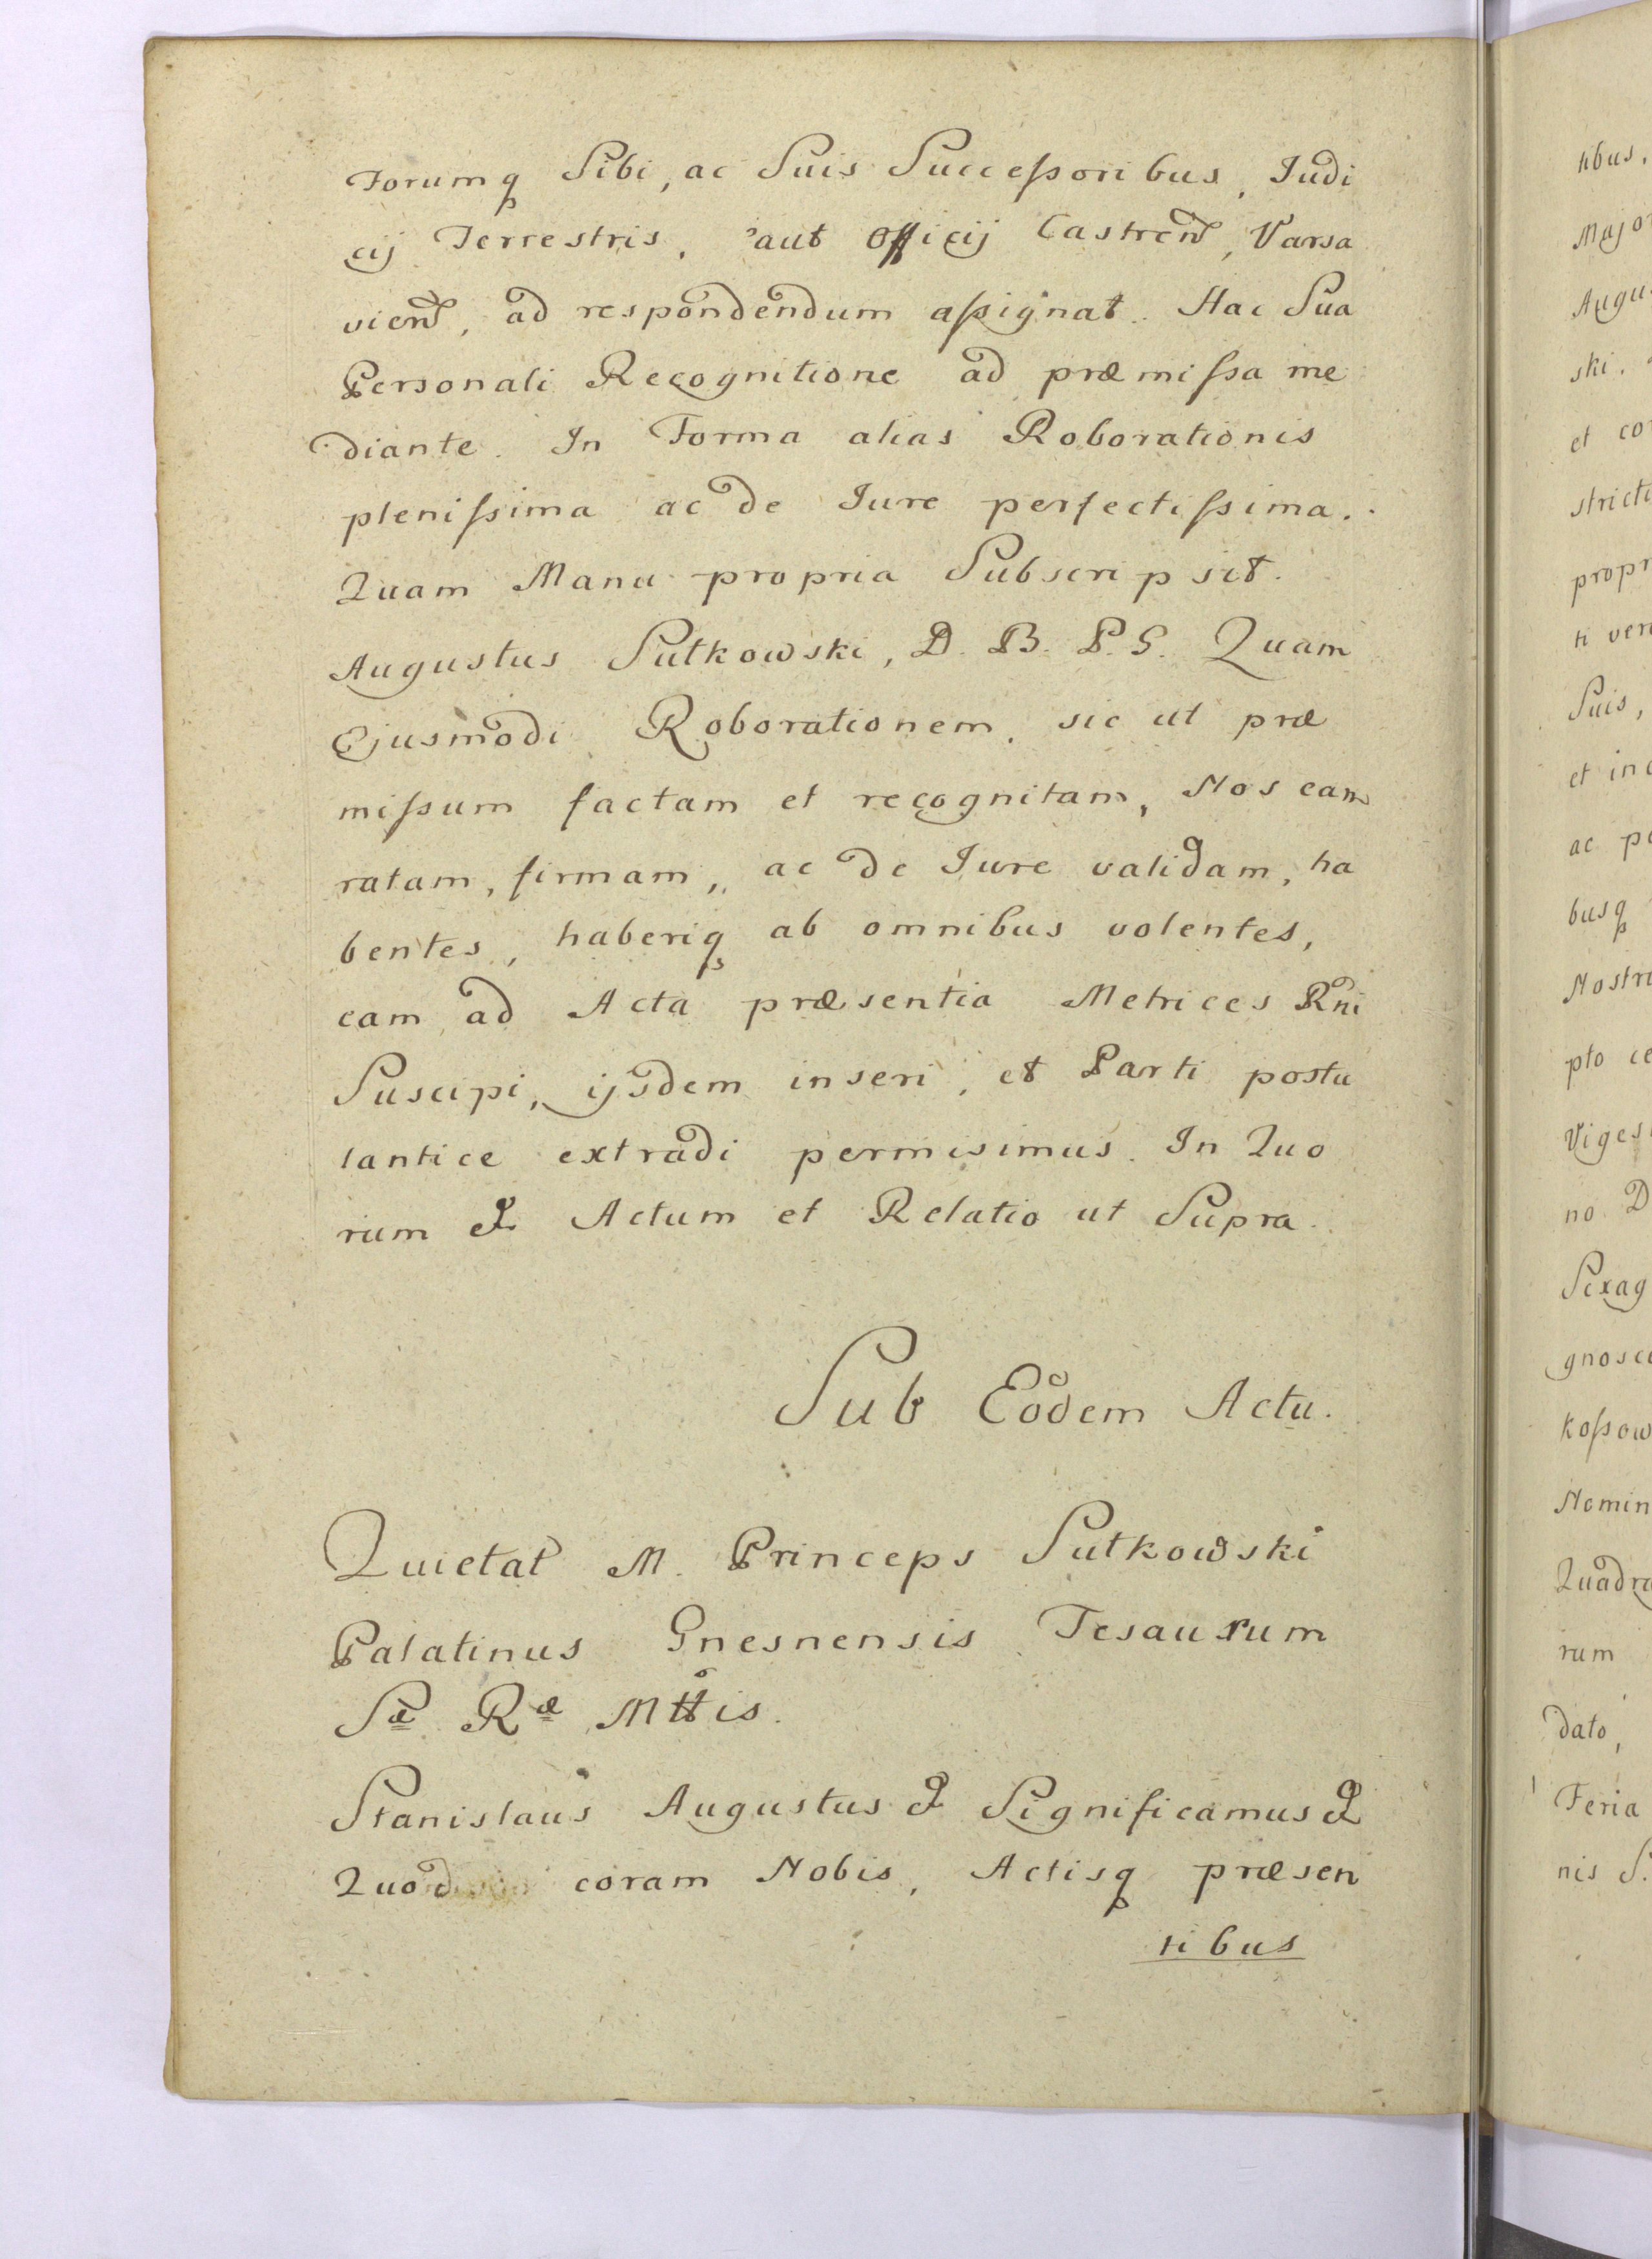 Forumq Sibi, ac Suis Succeſsoribus, Iudi
cij Terrestris, aut Officij Castren, Varsa
vien, ad respondendum aſsignat. Hac Sua
Personali Recognitione ad præmiſsa me
diante. In Forma alias Roborationis
pleniſsima ac de Iure perfectiſsima.
Quam Manu propria Subscripsit.
Augustus Sułkowski, D. B. P. G. Quam
Ejusmodi Roborationem, sic ut præ
miſsum factam et recognitam, Nos eam
ratam, firmam, ac de Iure validam, ha
bentes, haberiq ab omnibus volentes,
eam ad Acta præsentia Metrices Rni
Suscipi, ijsdem inseri, et Parti postu
lantice extradi permisimus. In Quo
rum & Actum et Relatio ut Supra.
Sub Eodem Actu.
Quietat M. Princeps Sułkowski
Palatinus Gnesnensis Tesaurum
Sæ Ræ Mttis.
Stanislaus Augustus & Significamus &
Quod coram Nobis, Actisq præsen
tibus
tibus,
Major
Augus
ski,
et co
stricti
propr
ti ver
Suis,
et in
ac pe
busq
Nostr
pto ce
Viges
no D
Sexag
gnosc
Koſsow
Nomin
Quadra
rum
dato,
Feria
nis S.